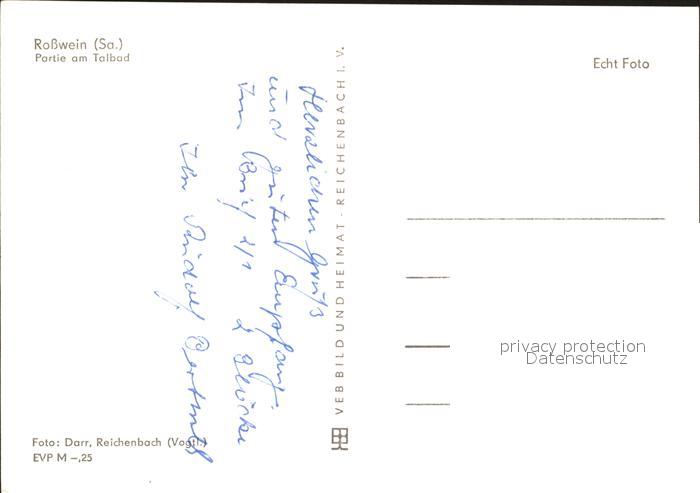 Roßwein (Sa.)
Partie am Talbad
Echt Foto
Herzlichen Gruß
und guten Empfang.
Ihr Rudolf
VEB BILD UND HEIMAT · REICHENBACH I. V.
privacy protection
Datenschutz
Foto: Darr, Reichenbach (Vogtl.)
EVP M –,25